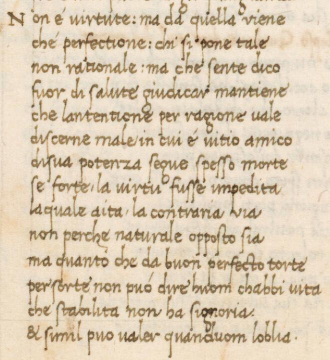 Non é virtute: ma da quella viene
che perfectione: chi si pone tale
non rationale: ma che sente dico
fuor di salute giudicar mantiene
che lantentione per ragione vale
discerne male in cui é vitio amico
disua potenza segue spesso morte
se forte la virtu fusse impedita
laquale aita la contraria via
non perche naturale opposto sia
ma quanto che da buon perfecto torte
per sorte non puó dire huom chabbi vita
che stabilita non ha signoria.
& simil puo valer quandhuom loblia.